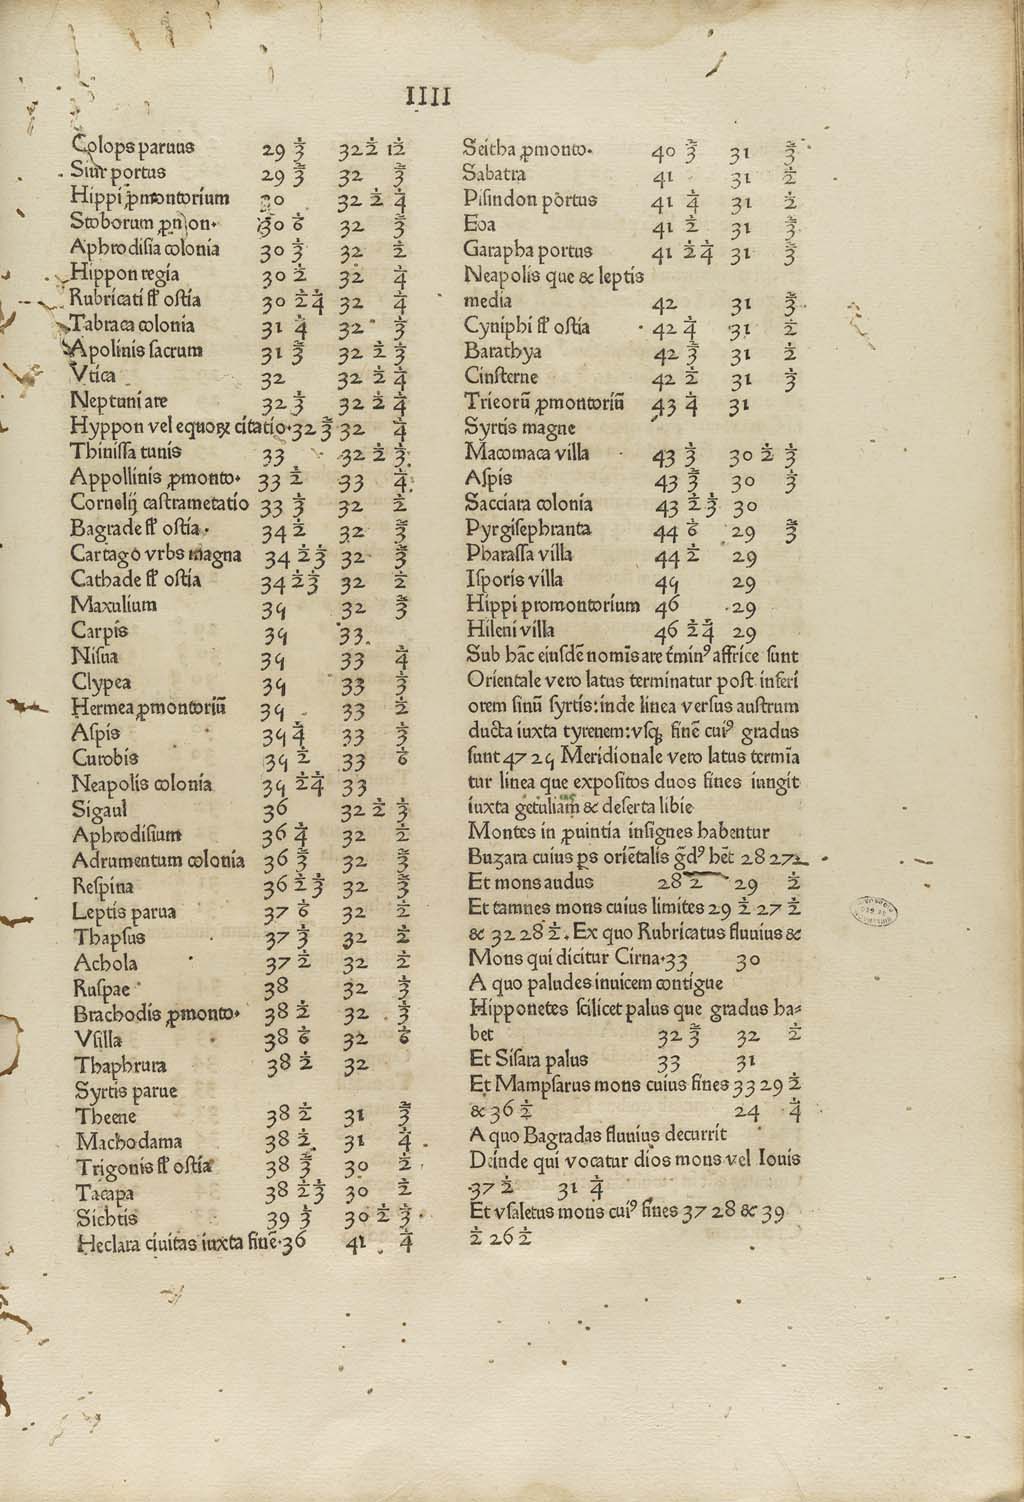 IIII
Colops paruus 29 ⅓ 32 ½ 12
Siur portus 29 ⅔ 32 ⅔
Hippi ꝓmontorium 30 32 ½ ¼
Stoborum ꝓmon. 30 ⅙ 32 ⅔
Aphrodisia colonia 30 ⅓ 32 ½
Hippon regia 30 ½ 32 ¼
Rubricati fl̄ ostia 30 ½ ¼ 32 ¼
Tabraca colonia 31 ¼ 32 ⅓
Apolinis sacrum 31 ⅔ 32 ½ ⅓
Vtica 32 32 ½ ¼
Neptuni are 32 ⅓ 32 ½ ¼
Hyppon vel equoꝝ citatio. 32 ⅔ 32 ¼
Thinissa tunis 33 32 ½ ⅓
Appollinis ꝓmonto. 33 ½ 33 ¼
Cornelij castrametatio 33 ⅓ 32 ½
Bagrade fl̄ ostia. 34 ½ 32 ⅔
Cartago vrbs magna 34 ½ ⅓ 32 ⅔
Cathade fl̄ ostia 34 ½ ⅓ 32 ½
Maxulium 35 32 ⅔
Carpis 35 33
Nisua 35 33 ¼
Clypea 35 33 ⅓
Hermea ꝓmontoriū 35 33 ½
Aspis 35 ¼ 33 ⅓
Curobis 35 ½ 33 ⅙
Neapolis colonia 35 ½ ¼ 33
Sigaul 36 32 ½ ⅓
Aphrodisium 36 ¼ 32 ½
Adrumentum colonia 36 ⅔ 32 ⅔
Respina 36 ½ ⅓ 32 ⅔
Leptis parua 37 ⅙ 32 ½
Thapsus 37 ⅓ 32 ½
Achola 37 ½ 32 ½
Ruspae 38 32 ⅓
Brachodis ꝓmonto. 38 ½ 32 ⅓
Vsilla 38 ⅙ 32 ⅙
Thaphrura 38 ½ 32
Syrtis parue
Theene 38 ½ 31 ⅔
Machodama 38 ½ 31 ¼
Trigonis fl̄ ostia 38 ⅔ 30 ½
Tacapa 38 ½ ⅓ 30 ½
Sichtis 39 ⅓ 30 ½ ⅓
Heclara ciuitas iuxta finē. 36 41 ¼
Seitha ꝓmonto. 40 ⅔ 31 ⅔
Sabatra 41 31 ½
Pisindon portus 41 ¼ 31 ½
Eoa 41 ½ 31 ⅔
Garapha portus 41 ½ ¼ 31 ⅔
Neapolis que & leptis
media 42 31 ⅔
Cyniphi fl̄ ostia 42 ¼ 31 ½
Barathya 42 ⅔ 31 ½
Cinsterne 42 ½ 31 ⅓
Trieorū ꝓmontoriū 43 ¼ 31
Syrtis magne
Macomaca villa 43 ⅓ 30 ½ ⅓
Aspis 43 ⅔ 30 ⅓
Sacciara colonia 43 ½ ⅓ 30
Pyrgisephranta 44 ⅙ 29 ⅔
Pharassa villa 44 ½ 29
Isporis villa 45 29
Hippi promontorium 46 29
Hileni villa 46 ½ ¼ 29
Sub hāc eiusdē nomīs are t́minꝰ affrice sunt
Orientale vero latus terminatur post inferi
orem sinū syrtis: inde linea versus austrum
ducta iuxta tyrenem: vsqꝫ finē cuiꝰ gradus
sunt 47 25 Meridionale vero latus termīa
tur linea que expositos duos fines iungit
iuxta getuliam & deserta libie
Montes in ꝓuintia insignes habentur
Buzara cuius ps oriētalis g̃dꝰ hēt 28 27
Et mons audus 28 ½ 29 ½
Et tamnes mons cuius limites 29 ½ 27 ½
& 32 28 ½. Ex quo Rubricatus fluuius &
Mons qui dicitur Cirna. 33 30
A quo paludes inuicem contigue
Hipponetes scilicet palus que gradus ha⸗
bet 32 ⅔ 32 ½
Et Sisara palus 33 31
Et Mampsarus mons cuius fines 33 29 ½
& 36 ½ 24 ¼
A quo Bagradas fluuius decurrit
Deinde qui vocatur dios mons vel Iouis
37 ½ 31 ¼
Et vsaletus mons cuiꝰ fines 37 28 & 39
½ 26 ½